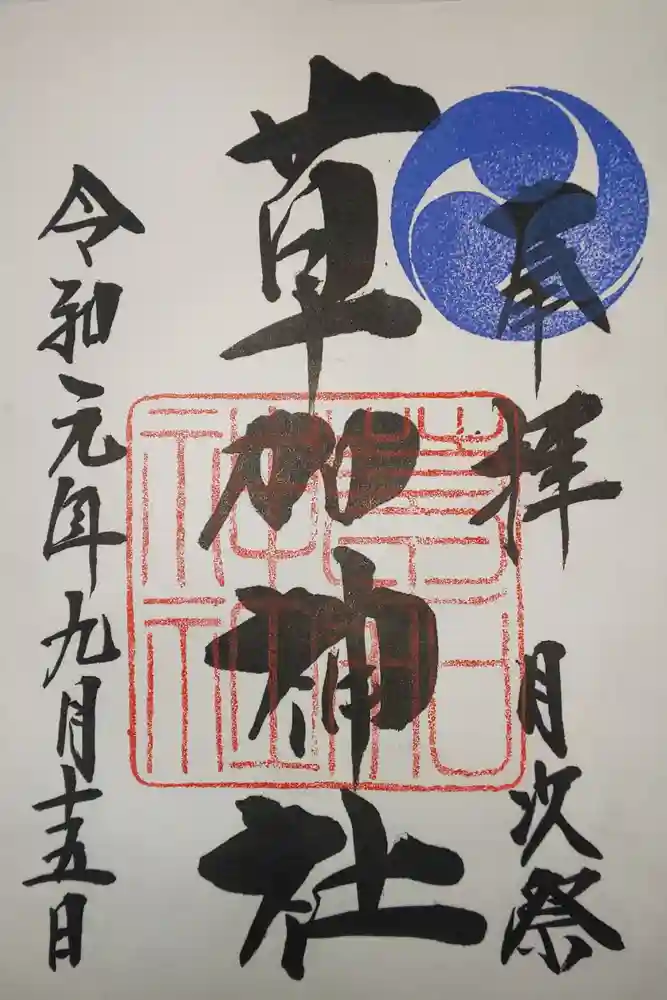 奉拝
月次祭
草加神社
令和元年九月十五日
草加神社